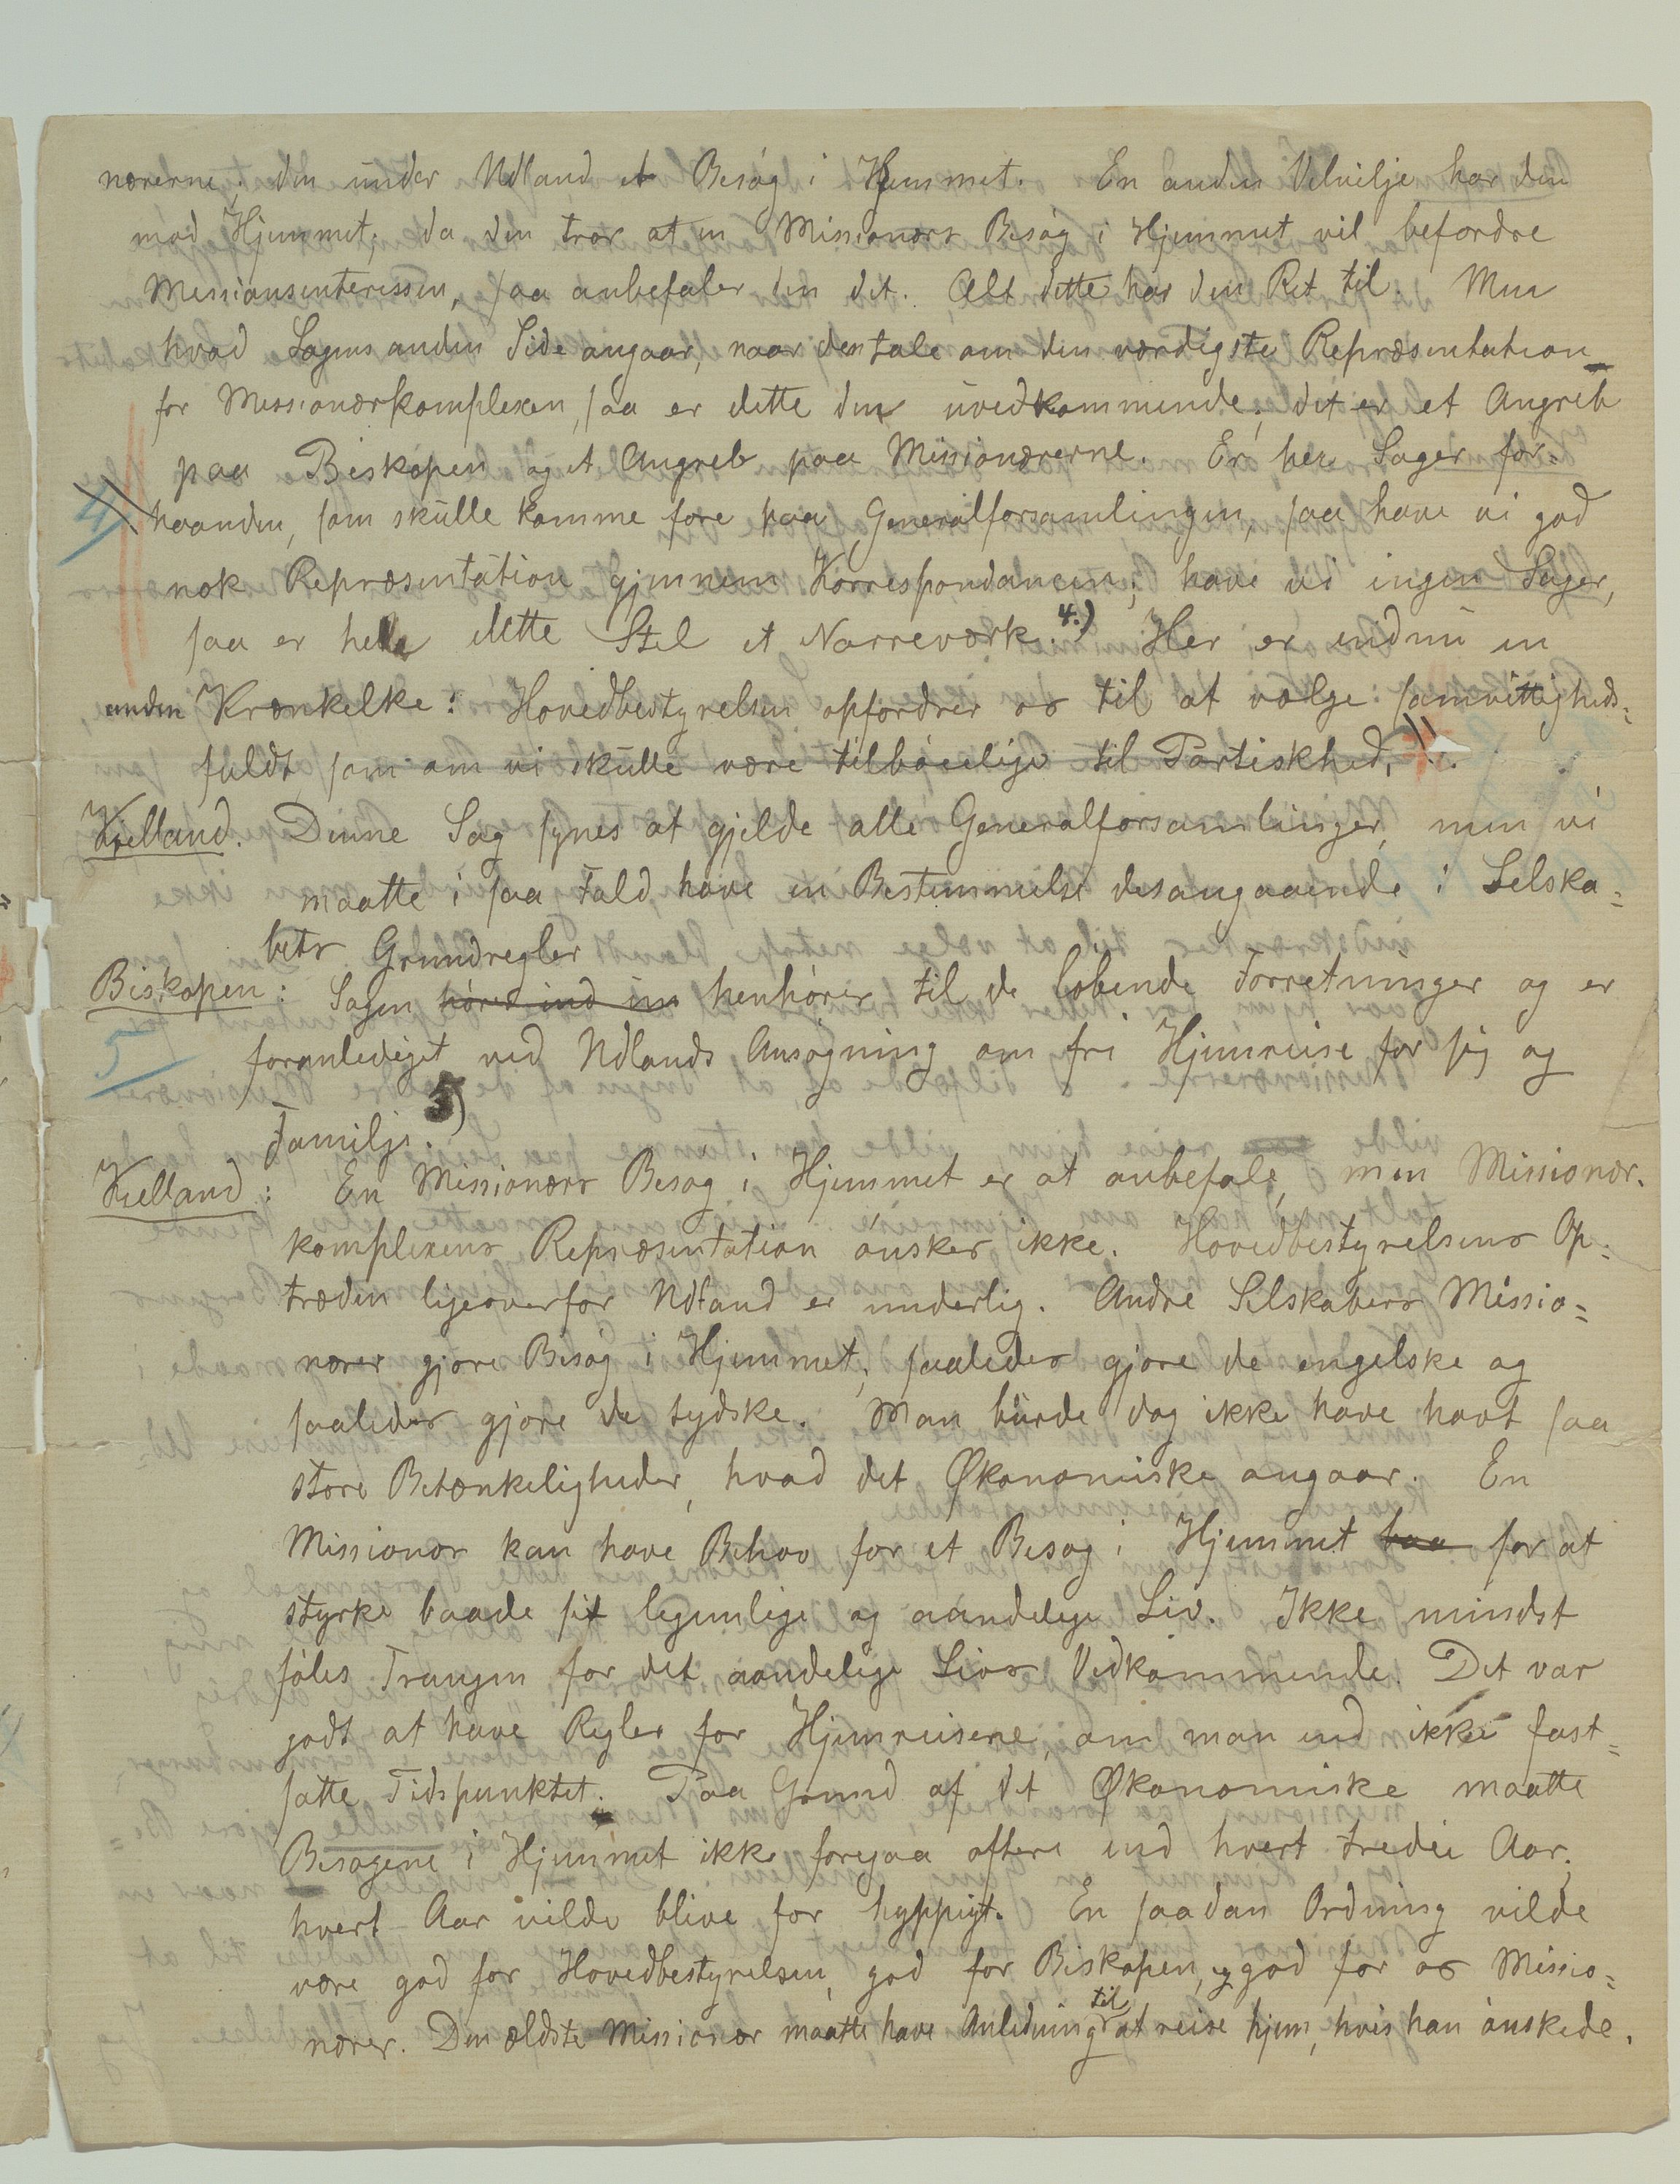 nærerne; den under Udland et Besøg i Hjemmet. En anden Velvilje har den
mod Hjemmet; da den tror at en Missionærs Besøg i Hjemmet vil befordre
Missionsinteressen, saa anbefaler den det. Alt dette har den Ret til. Men
hvad Sagens anden Side angaar, naar den tale om den værdigste Repræsentation
for Missionærkomplexen, saa er dette den uvedkommende; det er et Angreb
paa Biskopen og et Angreb paa Missionærerne. Er her Sager for-
4) haanden, som skulle komme fore paa Generalforsamlingen, saa have vi god
nok Repræsentation gjennem Korrespondancen; have vi ingen Sager,
saa er hele dette Stel et Narreværk. 4.) Her er endnu en
anden Krænkelke: Hovedbestyrelsen opfordrer os til at vælge samvittigheds-
fuldt, som om vi skulle være tilbøielige til Partiskhed.
Kielland. Denne Sag synes at gjelde alle Generalforsamlinger, men vi
maatte i saa Fald have en Bestemmelse desangaaende i Selska-
bets Grundregler
Biskopen: Sagen høres ind un henhører til de løbende Forretninger og er
5) foranlediget ved Udlands Ansøgning om fri Hjemreise for sig og
Familje. 5)
Kielland: En Missionærs Besøg i Hjemmet er at anbefale, men Missionær-
komplexens Repræsentation ønskes ikke. Hovedbestyrelsens Op-
træden ligeoverfor Udland er underlig. Andre Selskabers Missio-
nærer gjøre Besøg i Hjemmet; saaledes gjøre de engelske og
saaledes gjøre de tydske. Man burde dog ikke have havt saa
store Betænkeligheder, hvad det Økonomiske angaar. En
Missionær kan have Behov for et Besøg i Hjemmet baa for at
styrke baade sit legemlige og aandelige Liv. Ikke mindst
føles Trangen for det aandelige Livs Vedkommende. Det var
godt at have Regler for Hjemreisene, om man end ikke fast-
satte Tidspunktet. Paa Grund af det Økonomiske maatte
Besøgene i Hjemmet ikke foregaa oftere end hvert tredie Aar;
hvert Aar vilde blive for hyppigt. En saadan Ordning vilde
være god for Hovedbestyrelsen, god for Biskopen, og god for os Missio-
nærer. Den ældste Missionær maatte have Anledning til at reise hjem, hvis han ønskede.